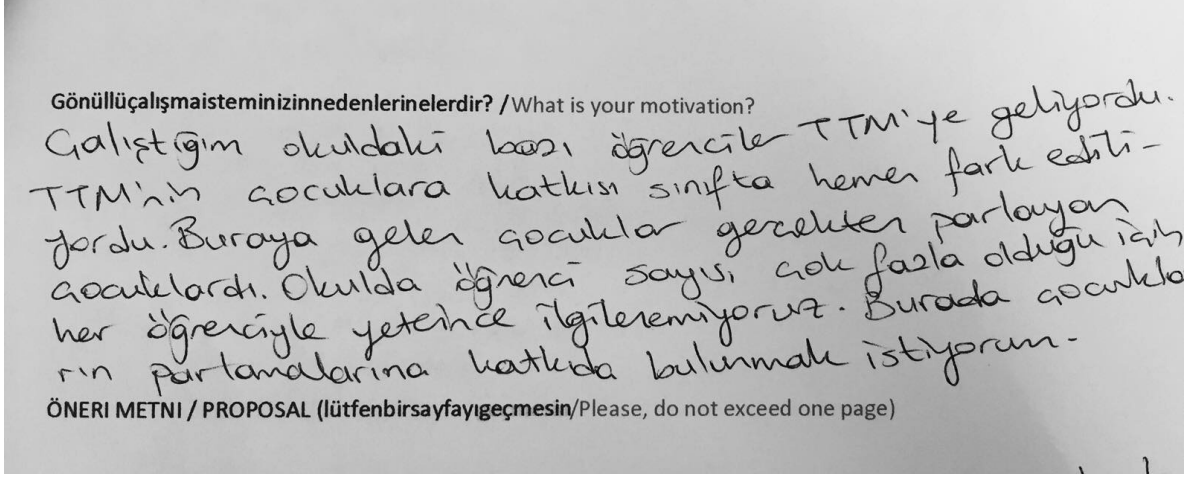 Gönüllüçalışmaisteminizinnedenlerinelerdir? /What is your motivation?
Çalıştığım okuldaki bazı öğrenciler TTM'ye geliyordu.
TTM'nin çocuklara katkısı sınıfta hemen fark edili-
yordu. Buraya gelen çocuklar gerçekten parlayan
çocuklardı. Okulda öğrenci sayısı çok fazla olduğu için
her öğrenciyle yeterince ilgilenemiyoruz. Burada çocukla
rın parlamalarına katkıda bulunmak istiyorum.
ÖNERI METNI / PROPOSAL (lütfenbirsayfayıgeçmesin/Please, do not exceed one page)